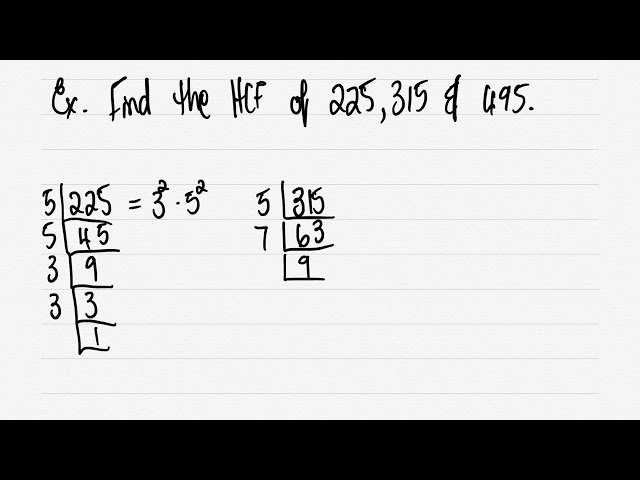 Ex. Find the HCF of 225, 315 & 495.
5 225 = 3² · 5² 5 315
5 45 7 63
3 9 9
3 3
1